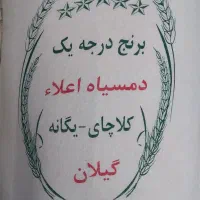 برنج درجه یک
دمسیاه اعلاء
کلاچای-یگانه
گیلان